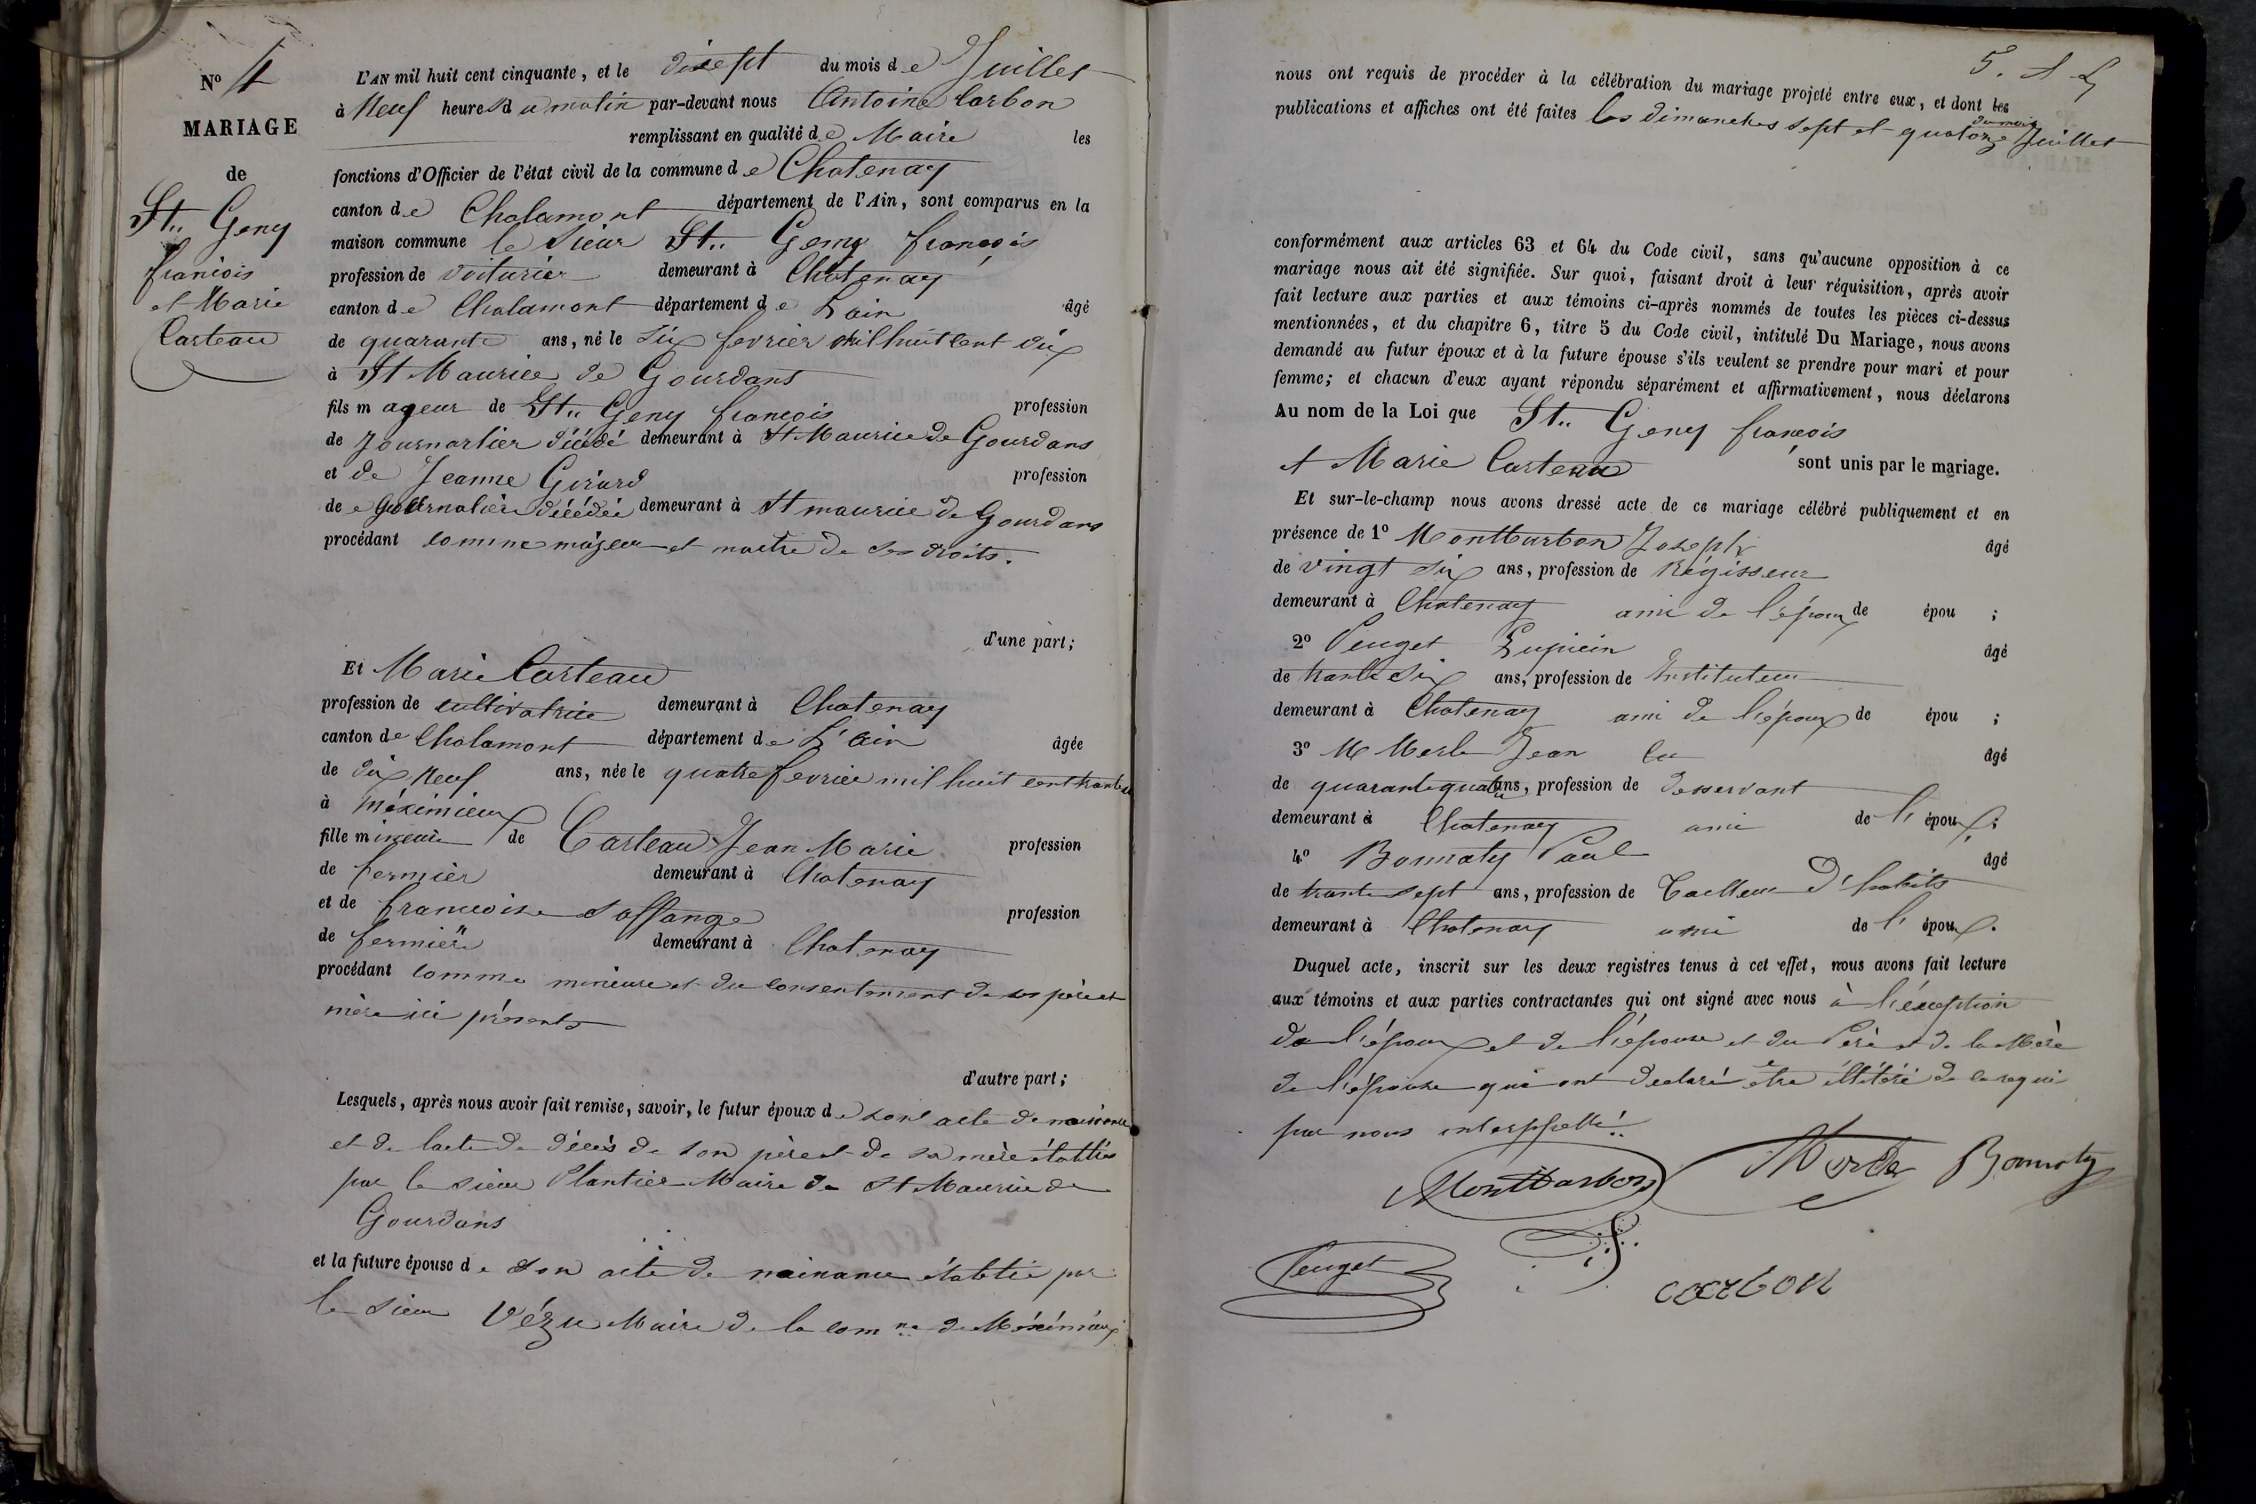 N° 4
MARIAGE
de
St.. Geny
francois
et Marie
Carteau
L'AN mil huit cent cinquante, et le disept du mois de Juillet
à Neuf heures du matin par-devant nous Antoine Carbon
remplissant en qualité de Maire les
fonctions d'Officier de l'état civil de la commune de Chatenay
canton de Chalamont département de l'Ain, sont comparus en la
maison commune le Sieur St.. Geny françois
profession de voiturier demeurant à Chatenay
canton de Chalamont département de Lain âgé
de quarante ans, né le Six fevrier mil huit cent dix
à St Maurice de Gourdans
fils mageur de St.. Geny francois profession
de Journarlier décédé demeurant à St Maurice de Gourdans
et de Jeanne Girard profession
de décédée demeurant à St maurice de Gourdans
procédant comme majeur et maitre de ses droits.
d'une part;
Et Marie Carteau
profession de cultivatrice demeurant à Chatenay
canton de Chalamont département de L'ain âgée
de dix Neuf ans, née le quatre fevrier mil huit cent trante un
à Méximieux
fille mineure de Carteau Jean Marie profession
de fermier demeurant à Chatenay
et de francoise Saffange profession
de fermière demeurant à Chatenay
procédant comme mineure et du consentement de ses père et
mère ici présents
d'autre part;
Lesquels, après nous avoir fait remise, savoir, le futur époux de son acte de naissance
et de lacte de décès de son père et de sa mère établies
par le sieur Plantier Maire de St Maurice de
Gourdans
et la future épouse de son acte de naissance établie par
le sieur Vézu Maire de la com ne de Méximieux
5. A L
nous ont requis de procéder à la célébration du mariage projeté entre eux, et dont les
publications et affiches ont été faites les dimanches sept et quatorze du mois Juillet
conformément aux articles 63 et 64 du Code civil, sans qu'aucune opposition à ce
mariage nous ait été signifiée. Sur quoi, faisant droit à leur réquisition, après avoir
fait lecture aux parties et aux témoins ci-après nommés de toutes les pièces ci-dessus
mentionnées, et du chapitre 6, titre 5 du Code civil, intitulé Du Mariage, nous avons
demandé au futur époux et à la future épouse s'ils veulent se prendre pour mari et pour
femme; et chacun d'eux ayant répondu séparément et affirmativement, nous déclarons
Au nom de la Loi que St.. Geny francois
et Marie Carteau sont unis par le mariage.
Et sur-le-champ nous avons dressé acte de ce mariage célébré publiquement et en
présence de 1° Montbarbon Joseph âgé
de vingt six ans, profession de Régisseur
demeurant à Chatenay ami de l'époux de épou ;
2° Peuget Lupicin âgé
de trante Six ans, profession de Instituteur
demeurant à Chatenay ami de l'époux de épou ;
3° M Merle Jean âgé
de quarante quatre ans, profession de desservant
demeurant à Chatenay ami de l' époux ;
4° Bonnaty Paul âgé
de trante sept ans, profession de Tailleur d'habits
demeurant à Chatenay ami de l' époux.
Duquel acte, inscrit sur les deux registres tenus à cet effet, nous avons fait lecture
aux témoins et aux parties contractantes qui ont signé avec nous à l'éxception
de l'époux et de l'épouse et du Père et de la Mère
de l'épouse qui ont declaré être illétéré de ce requi
par nous interppellé..
Montbarbon Merle Bonnaty
Peuget carbon